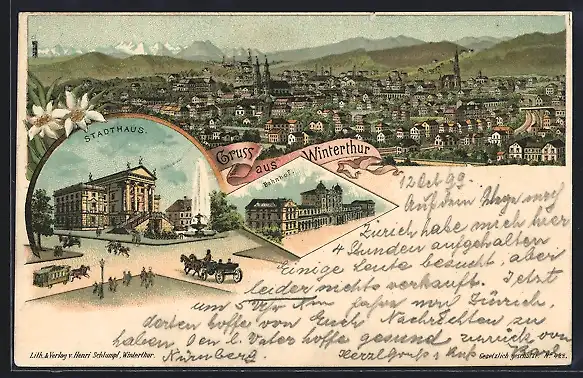 STADTHAUS.
Gruss aus Winterthur
Bahnhof.
12 Oct 99
Auf dem Wege nach
Zürich habe mich hier
4 Stunden aufgehalten
Einige Leute besucht, aber
leider nichts verkauft. Jetzt
um 5 Uhr Zürich,
dorten hoffe von Euch Nachrichten zu
haben den l. Vater hoffe gesund zurück von
Nürnberg. Herzl. Gruss & Kuss
Lith. & Verlag v. Henri Schlumpf, Winterthur.
Gesetzlich geschützt.